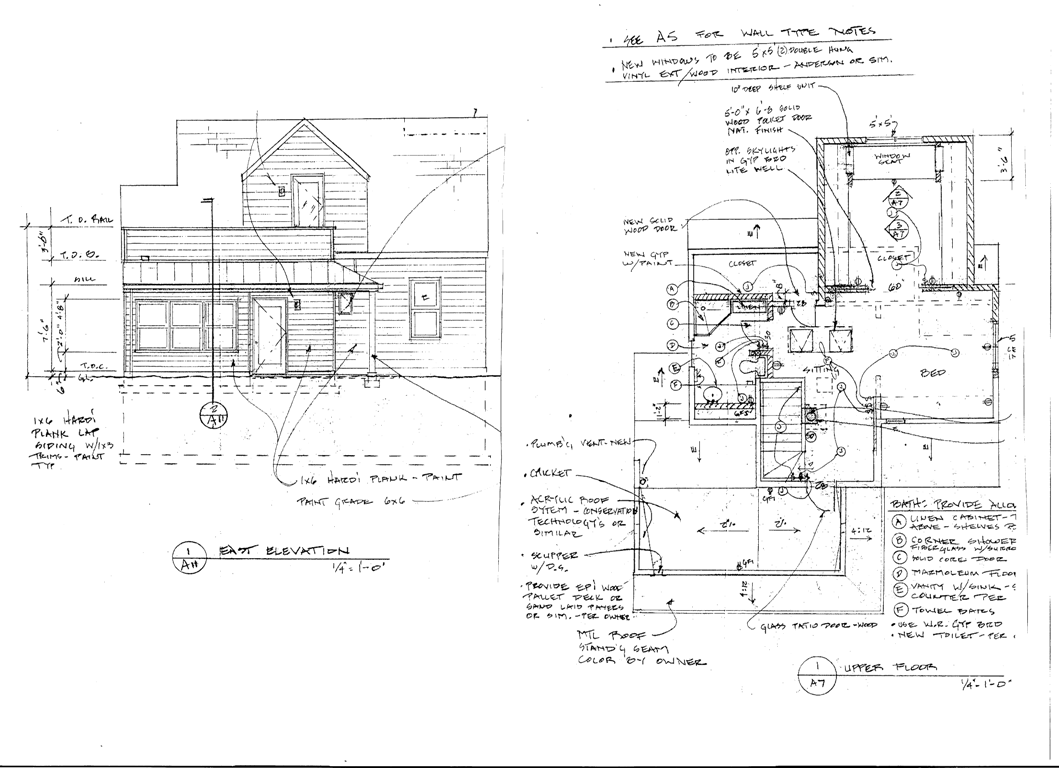 • SEE A5 FOR WALL TYPE NOTES
• NEW WINDOWS TO BE 5'x5' (2) DOUBLE HUNG
VINYL EXT/WOOD INTERIOR - ANDERSON OR SIM.
10" DEEP SHELF UNIT
5'-0" x 6'-8 SOLID
WOOD POCKET DOOR
NAT. FINISH
5'x5'
SKYLIGHTS
IN GYP BRD
LITE WELL
WINDOW
SEAT
3'-6"
2
A7
3
A7
NEW SOLID
WOOD DOOR
NEW GYP
W/PAINT
CLOSET
CLOSET
60
A
B
C
D
E
F
LINEN
28
SITTING
BED
28
GFI
GFI
2%
2%
4:12
4:12
T.O. RAIL
3'-0"
T.O.
SILL
7'-6"
2'-0"
4'-8"
T.O.C.
GL.
6"
1x6 HARDI
PLANK LAP
SIDING W/1x3
TRIMS - PAINT
TYP
2
A11
1x6 HARDI PLANK - PAINT
PAINT GRADE 6x6
1
A11
EAST ELEVATION
1/4" = 1'-0"
• PLUMB'G VENT-NEW
• CRICKET
• ACRYLIC ROOF
SYTEM - CONSERVATION
TECHNOLOGY'S OR
SIMILAR
• SCUPPER
W/D.S.
• PROVIDE EPI WOOD
PALLET DECK OR
SAND LAID PAVERS
OR SIM. - PER OWNER
MTL ROOF
STAND'G SEAM
COLOR BY OWNER
GLASS PATIO DOOR - WOOD
BATH: PROVIDE ALLO
A LINEN CABINET -
ABOVE - SHELVES
B CORNER SHOWER
FIBERGLASS W/SURRO
C SOLID CORE DOOR
D MARMOLEUM FLOO
E VANITY W/SINK -
COUNTER PER
F TOWEL BARS
• USE W.R. GYP BRD
• NEW TOILET - PER
1
A7
UPPER FLOOR
1/4" - 1'-0"